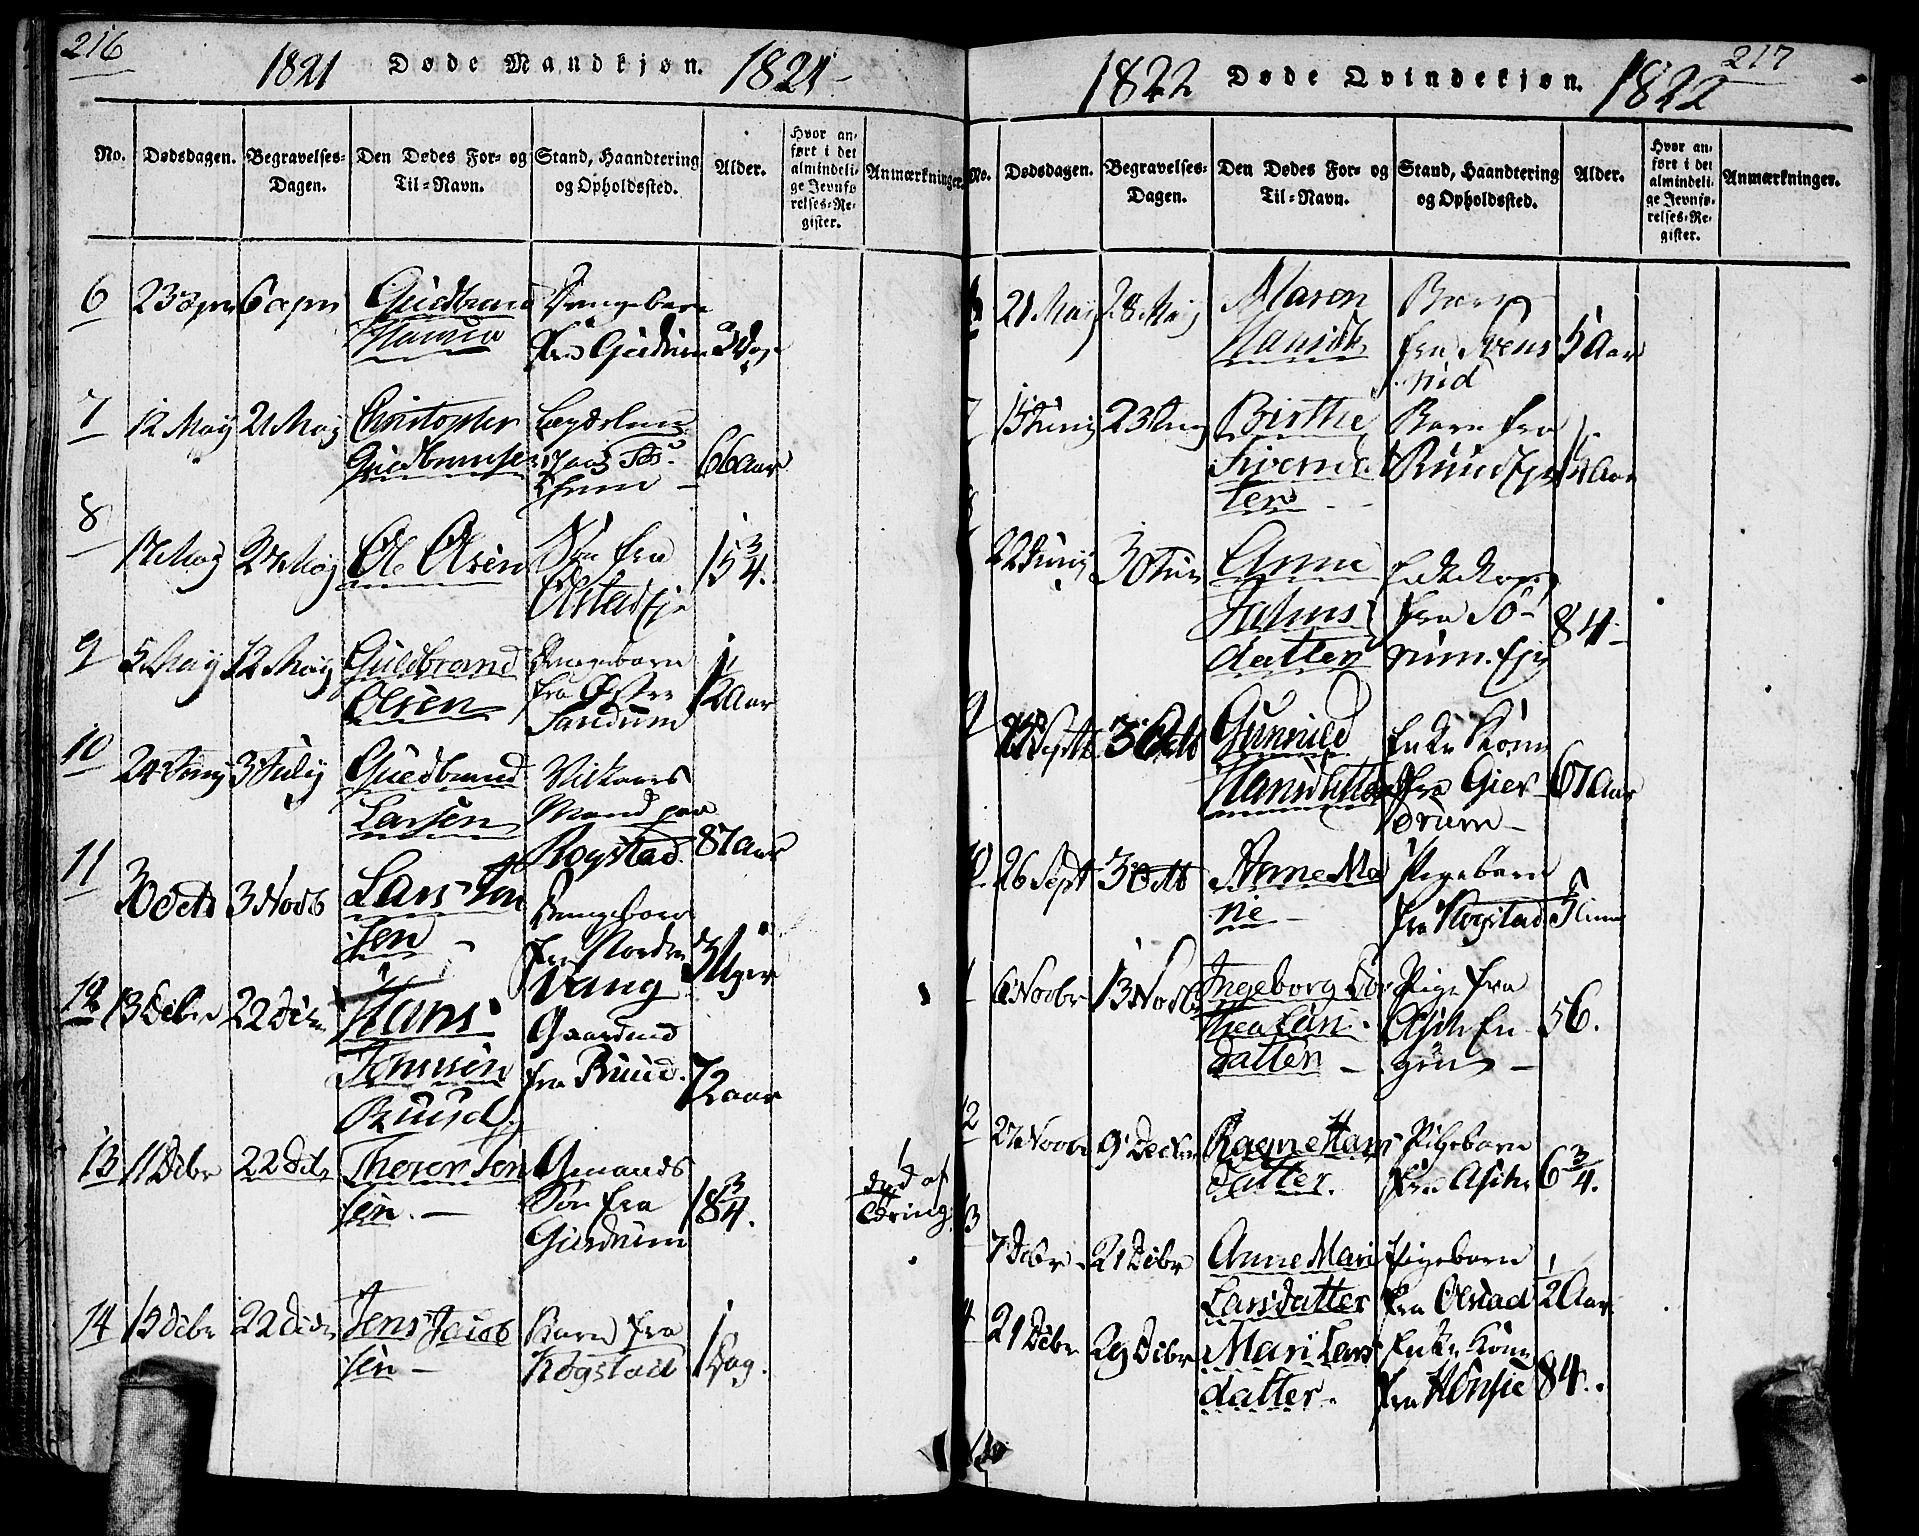 216
1821 Døde Mandkjøn. 1821
No.
Dødsdagen.
Begravelses-
Dagen.
Den Dødes For- og
Til-Navn.
Stand, Haandtering
og Opholdssted.
Alder.
Hvor an-
ført i det
almindeli-
ge Jevnfø
relses-Re-
gister.
Anmærkninger.
6 23 apr 6 apr Guldbrand
Hansen
Drengebarn
fra Gierdrum 3 Dage
7 12 Maij 21 Maij Christopher
Guldbrandsen
66 Aar
8 17 Maij 27 Maij Ole Olsen Søn fra
Ølstad Eje
15 3/4.
9 5 Maij 12 Maij Guldbrand
Olsen
Drengebarn
fra Østre
Sandum
1/2 Aar
10 24 Junij 3 Julij Guldbrand
Larsen
Vilkaars
Mand paa
Rogstad. 87 Aar
11 30 Octb 3 Novb Lars Jen
sen
Drengebarn
fra Nordre
Vang
3 Uger
12 13 Debr 22 Decbr Hans
Jenssen
Ruud
Gaardmd
fra Ruud.
72 aar
13 11 Debr 22 Debr Thorer Jen
sen. –
Gmands
Søn fra
Gierdrum
18 3/4.
død af
14 15 Debr 22 Debr Jens Jacob
sen –
Barn fra
Kogstad
1 Dag.
217
1822 Døde Qvindekjøn. 1822
No.
Dødsdagen.
Begravelses-
Dagen.
Den Dødes For- og
Til-Navn.
Stand, Haandtering
og Opholdssted.
Alder.
Hvor an-
ført i det
almindeli-
ge Jevnfø-
relses-Re-
gister.
Anmærkninger.
6 21 Maij 28 Maij Maren
Hansdtr
Barn
fra Stens
rud
5 Aar
7 15 Junij 23 Junij Birthe
Siverdat
ter
Barn fra
Ruud Eje
1/4 Aar
8 22 Junij 30 Jun Anne
Johns
datter
Enkekone
fra Sø-
rum. Eje
84
9 Septb 3 Octb Gunnild
Hansdatter
Enke Kone
fra Gier
drum –
67 Aar
10 26 Sept 3 Octb Anne Ma
rie –
Pigebarn
fra Kogstad
11 6 Novbr 13 Novbr Ingeborg Dor
thea Lars
datter –
Pige fra
Ask En
gen –
56.
12 27 Novbr 9 Decbr Ragne Hans
datter.
Pigebarn
fra Ask
6 3/4.
13 7 Debr 21 Debr Anne Mari
Larsdatter
Pigebarn
fra Ølstad
1/2 Aar
14 21 Debr 29 Debr Mari Lars
datter –
Enke Kone
fra Hønsie
84.